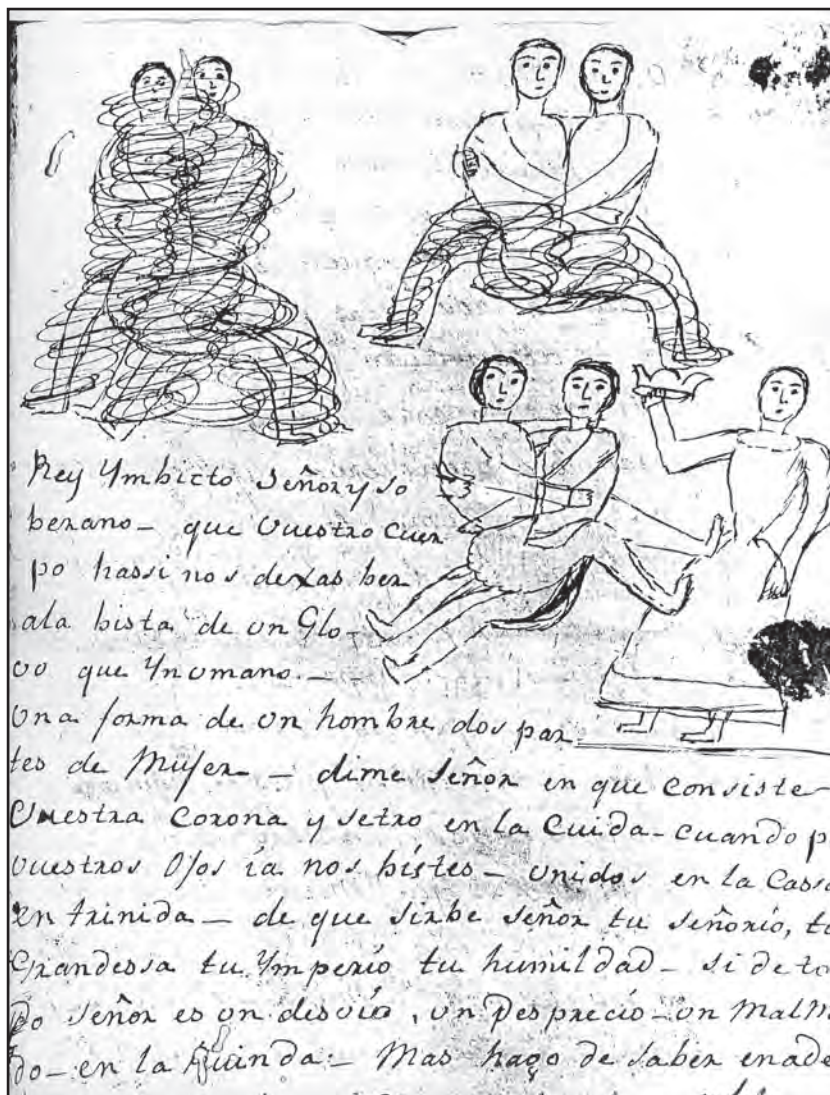 Rey Ymbicto señor y so
berano – que Vuestro Cuer
po hassi nos dexas ber
ala bista de un Glo–
vo que Ynumano.–
Una forma de un hombre dos par
tes de Mujer – dime señor en que consiste –
Vuestra Corona y setro en la Cuida – cuando p
Vuestros Ojos ia nos bistes – unidos en la Cassa
en trinida – de que sirbe señor tu señorio, tu
Grandessa tu Ymperio tu humildad – si de to
do señor es un desvio, un Desprecio – un Malm
do – en la – Mas hago de saber enade